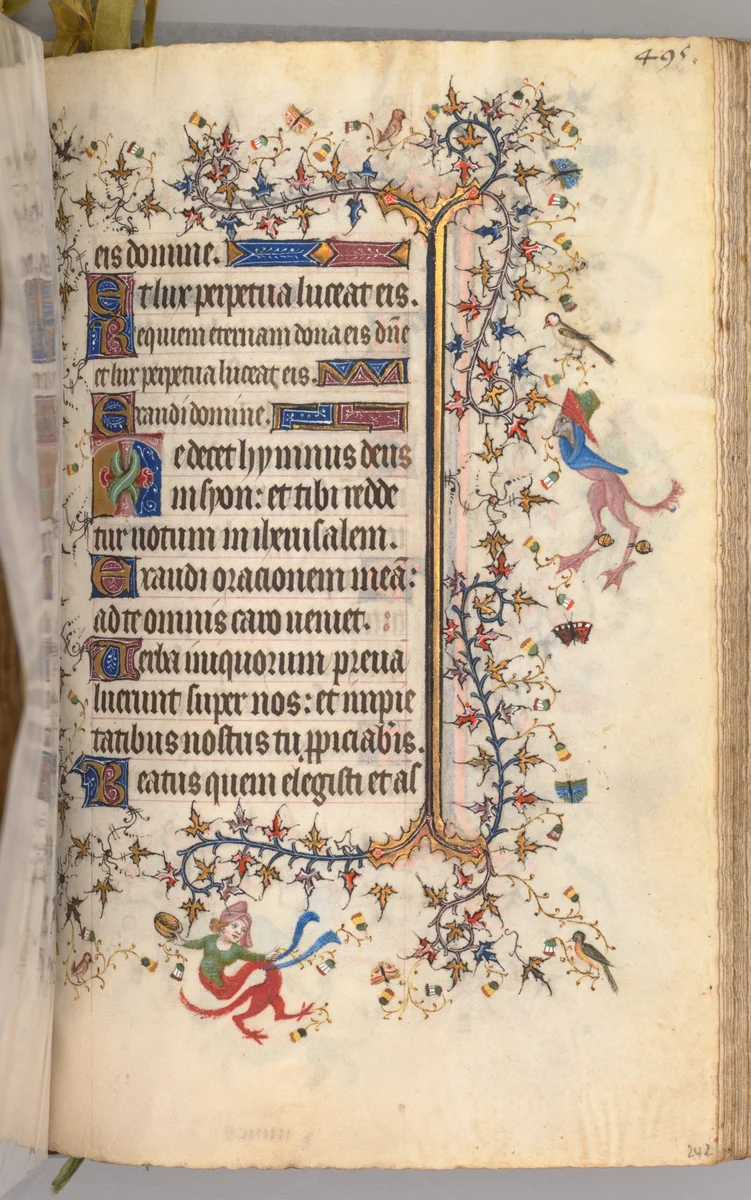 495.
eis domine.
Et lux perpetua luceat eis.
Requiem eternam dona eis dn̄e
et lux perpetua luceat eis.
Exaudi domine.
Te decet hymnus deus
in syon: et tibi redde
tur uotum in iherusalem.
Exaudi orationem meā:
ad te omnis caro ueniet.
Uerba iniquorum preua
luerunt super nos: et impie
tatibus nostris tu ꝓpiciabis.
Beatus quem elegisti et as
242